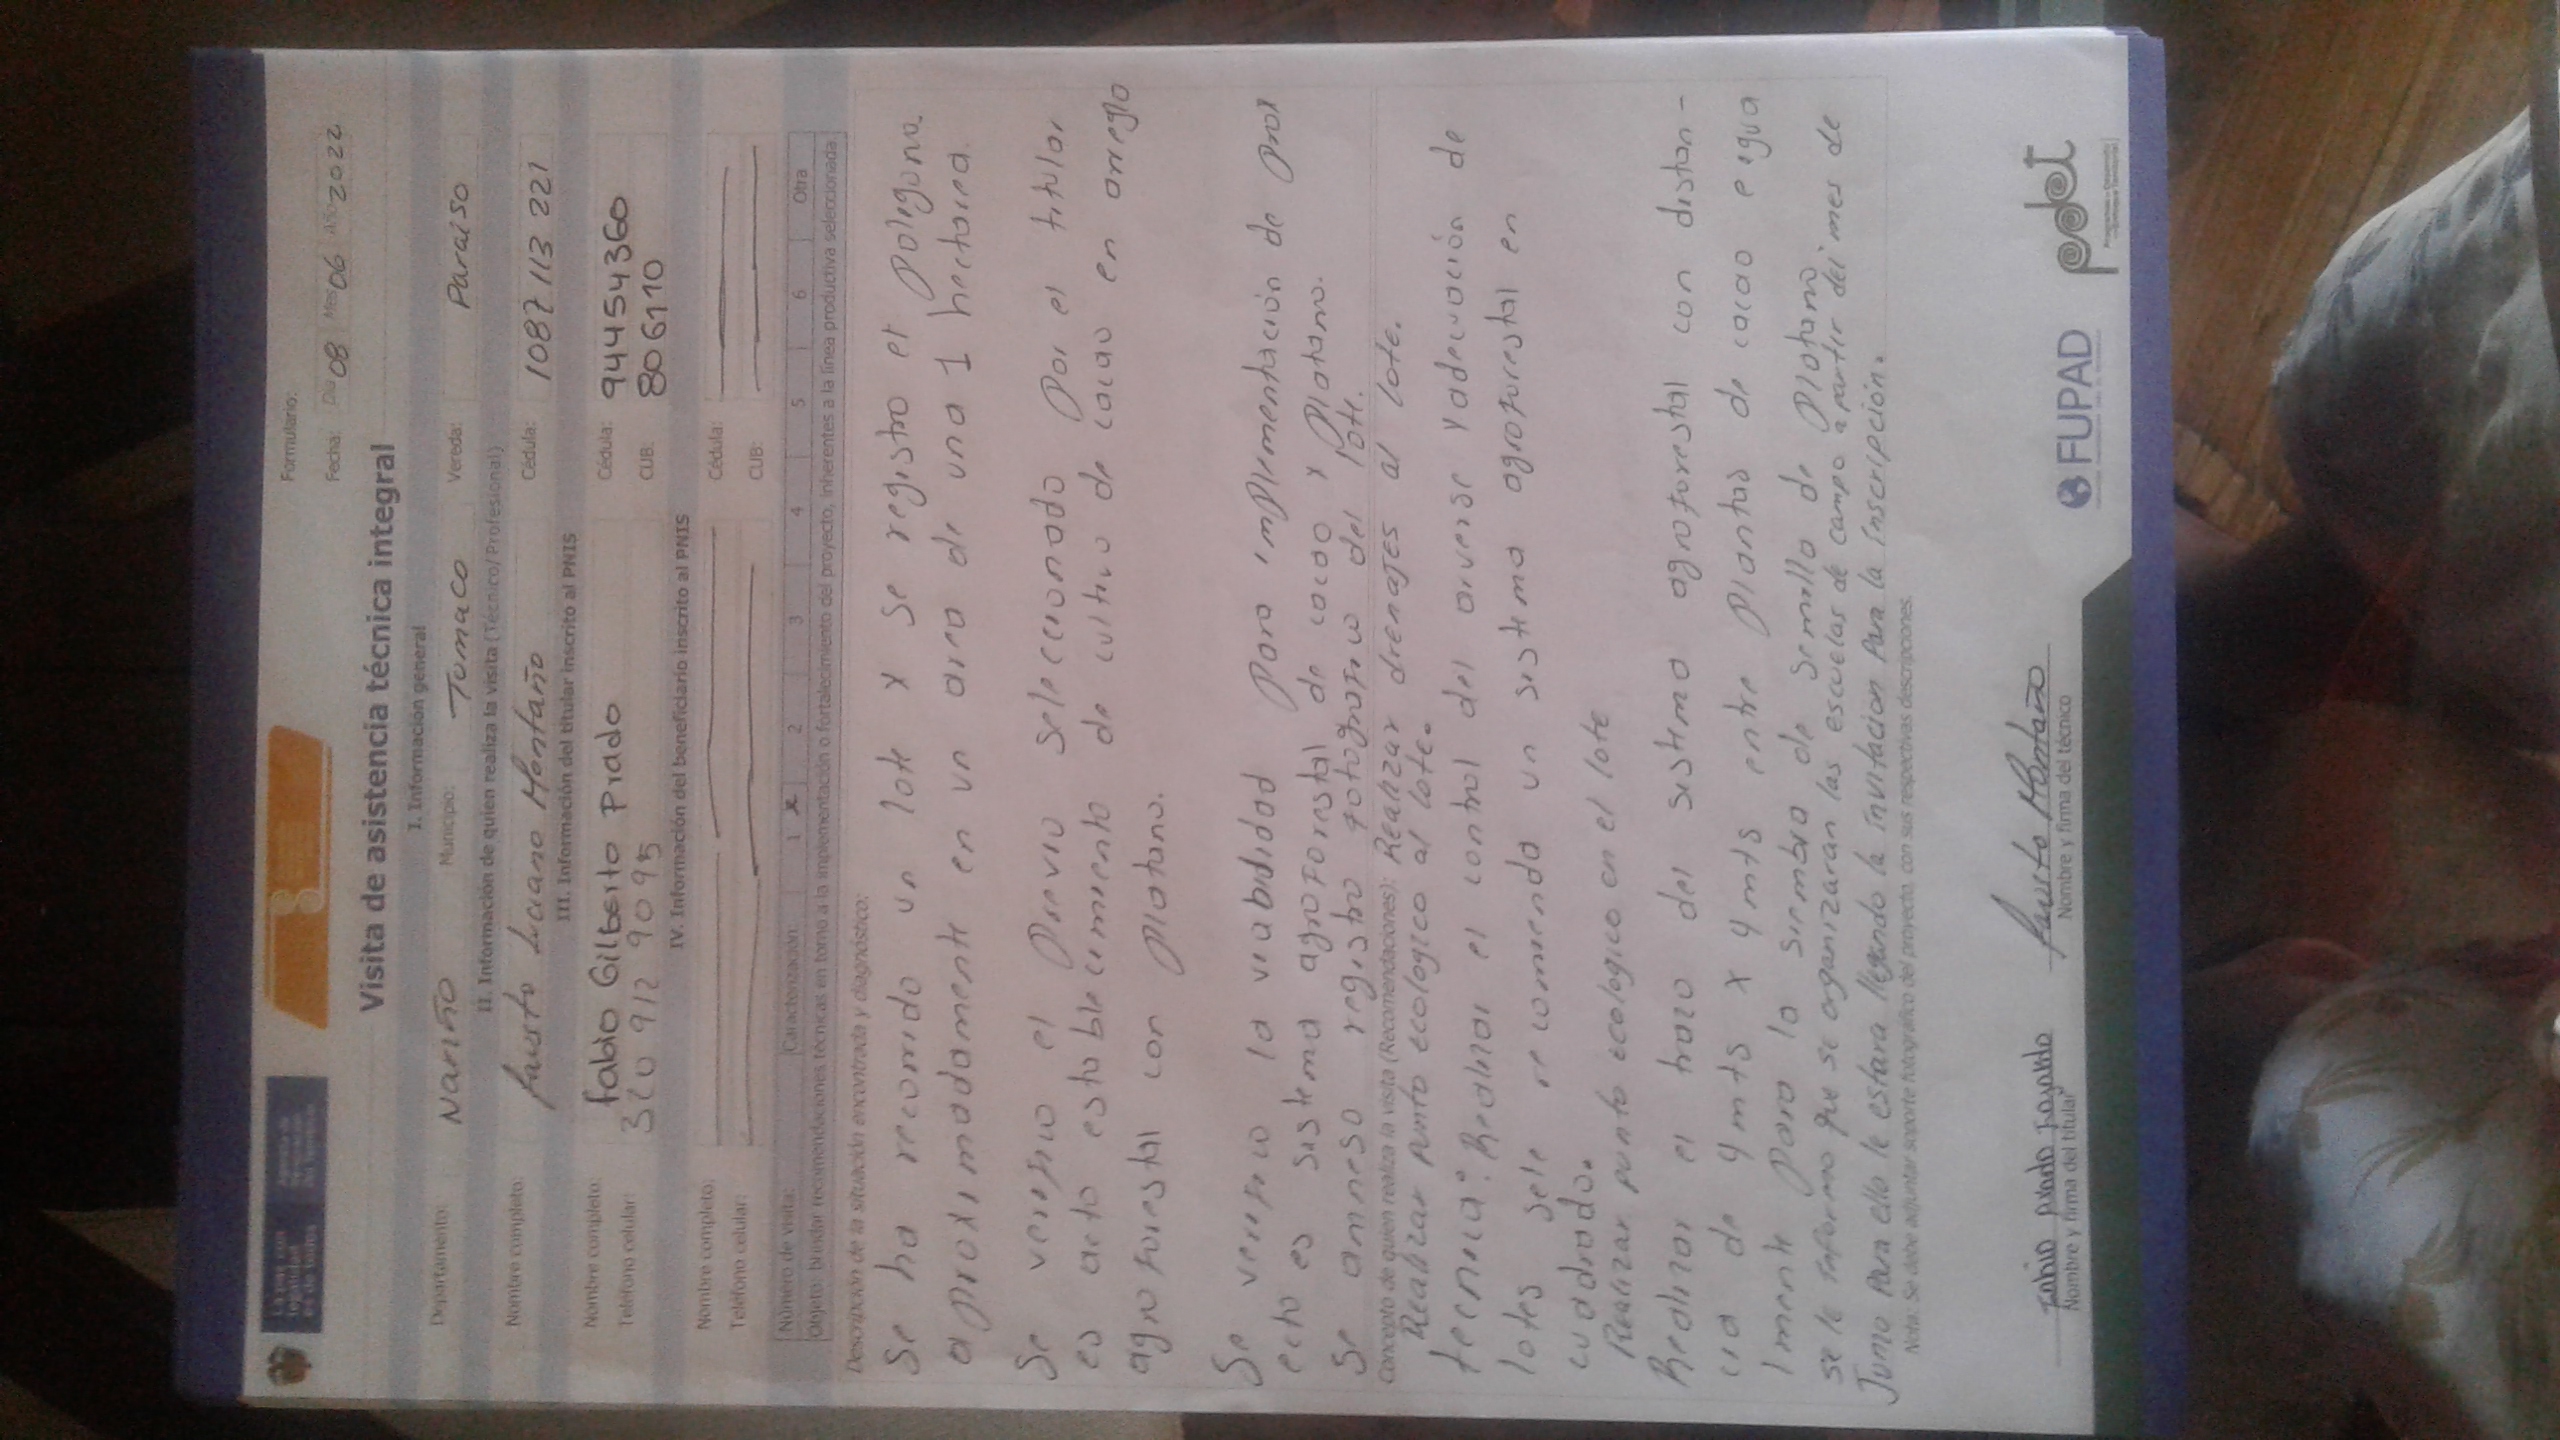 Formulario:
Fecha: Día 08 Mes 06 Año 2022
Visita de asistencia técnica integral
I. Información general
Departamento: Nariño Municipio: Tumaco Vereda: Paraiso
II. Información de quien realiza la visita (Técnico/Profesional)
Nombre completo: fausto Luciano Montaño Cédula: 1087 113 221
III. Información del titular inscrito al PNIS
Nombre completo: fabio Gilberto Prado Cédula: 94454360
Teléfono celular: 320 912 9095 CUB: 806110
IV. Información del beneficiario inscrito al PNIS
Nombre completo: Cédula:
Teléfono celular: CUB:
Número de visita: Caracterización: 1 x 2 3 4 5 6 Otra
Objeto: brindar recomendaciones técnicas en torno a la implementación o fortalecimiento del proyecto, inherentes a la línea productiva seleccionada
Descripción de la situación encontrada y diagnóstico:
Se ha recorrido un lote y se registro el poligono.
aproximadamente en un area de una 1 hectarea.
Se verifico el previo seleccionado por el titular
es acto establecimiento de cultivo de cacao en arreglo
agroforestal con platano.
Se verifico la viabididad para implementación de proy
ecto es sistema agroforestal de cacao y platano.
Se anneso registro fotografico del lote.
Concepto de quien realiza la visita (Recomendaciones): Realizar drenajes al lote.
Realizar punto ecologico al lote.
tecnica: Realizar el control del arvense y adecuación de
lotes sele recomienda un sistema agroforestal en
cuadrado.
Realizar punto ecologico en el lote
Realizar el trazo del sistema agroforestal con distan-
cia de 4 mts x 4 mts entre plantas de cacao e gua
lmente para la siembra de semilla de platano
se le informo que se organizaran las escuelas de campo a partir del mes de
Junio para ello le estara llegando la invitacion para la inscripcion.
Nota: Se debe adjuntar soporte fotográfico del proyecto, con sus respectivas descripciones.
fabio prado
Nombre y firma del titular
fausto Montaño
Nombre y firma del técnico
FUPAD
pdet